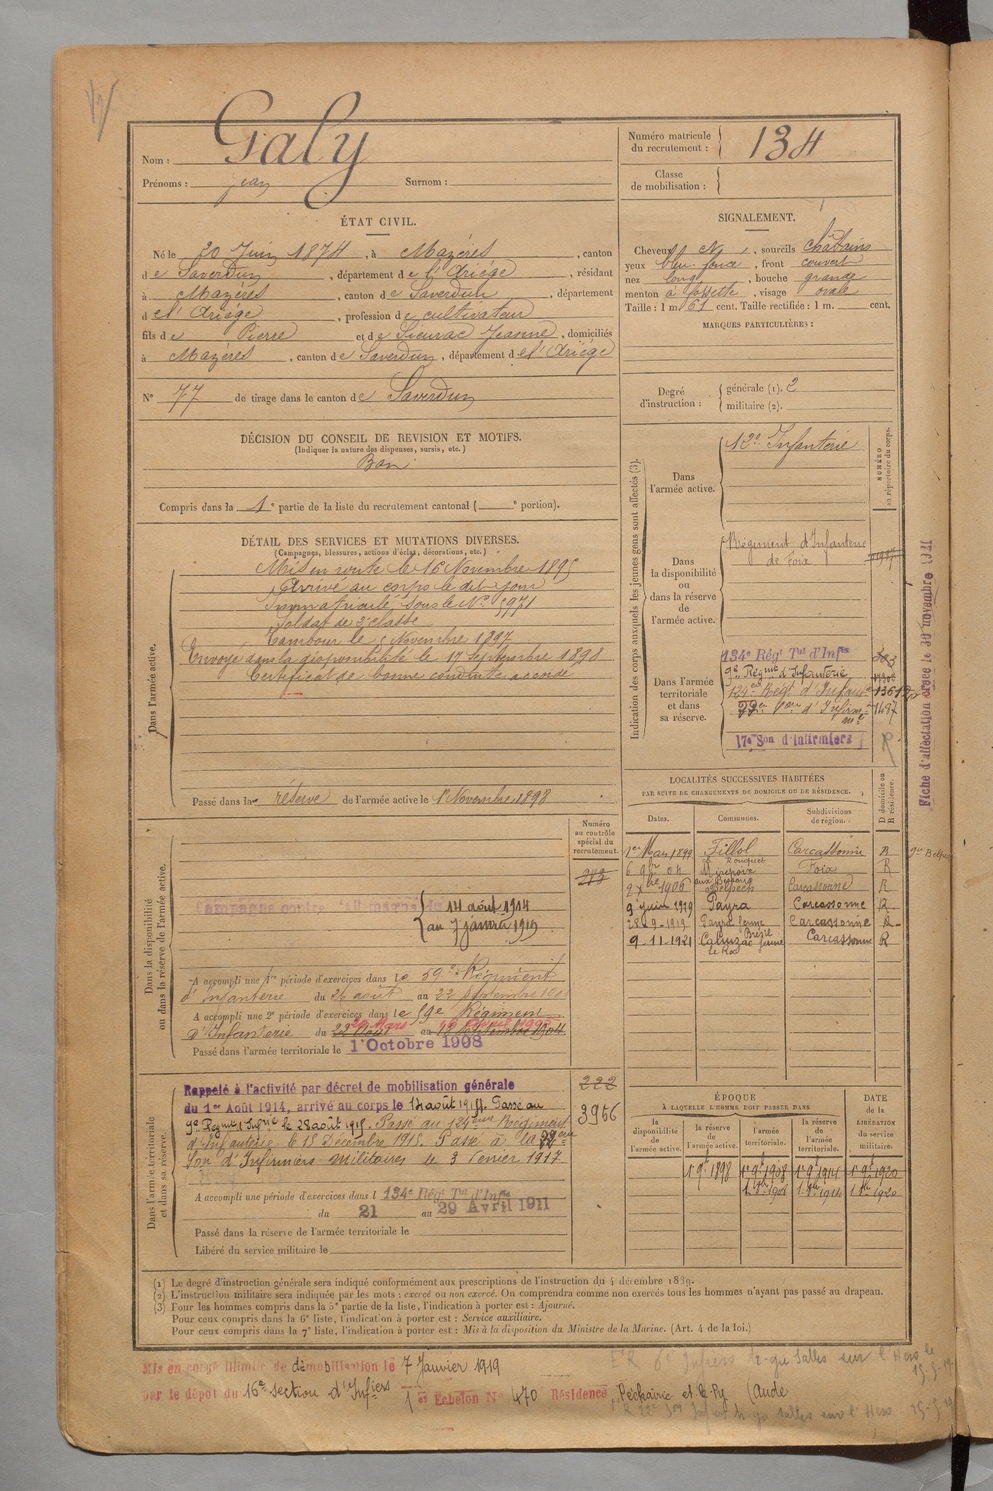 Galy
Nom :
Prénoms : jean Surnom :
Numéro matricule du recrutement : 134
Classe de mobilisation :
ÉTAT CIVIL.
Né le 20 Juin 1874, à Mazères, canton
de Saverdun, département de l'Ariège, résidant
à Mazères, canton de Saverdun, département
de l'Ariège, profession de cultivateur
fils de Pierre et de Sieurac Jeanne, domiciliés
à Mazères, canton de Saverdun, département de l'Ariège
N° 77 de tirage dans le canton de Saverdun
SIGNALEMENT.
Cheveux, sourcils châtains
yeux bleu foncé, front couvert
nez long, bouche grande
menton à fossette, visage ovale
Taille : 1 m. 61 cent. Taille rectifiée : 1 m. cent.
MARQUES PARTICULIÈRES :
Degré d'instruction : générale (1). 2
militaire (2).
DÉCISION DU CONSEIL DE REVISION ET MOTIFS.
(Indiquer la nature des dispenses, sursis, etc.)
Bon
Compris dans la 1e partie de la liste du recrutement cantonal ( e portion).
DÉTAIL DES SERVICES ET MUTATIONS DIVERSES.
(Campagnes, blessures, actions d'éclat, décorations, etc.)
Dans l'armée active.
Mis en route le 16 Novembre 1895
Arrivé au corps le dit jour
Immatriculé sous le N° 5971
Soldat de 2e classe
Tambour le 5 Novembre 1897
Envoyé dans la disponibilité le 17 Septembre 1898
Certificat de bonne conduite accordé
Passé dans la réserve de l'armée active le 1er Novembre 1898
Indication des corps auxquels les jeunes gens sont affectés (3).
NUMÉRO au répertoire du corps.
Dans l'armée active.
12e Infanterie
Dans la disponibilité ou dans la réserve de l'armée active.
Régiment d'Infanterie
de Foix
Dans l'armée territoriale et dans sa réserve.
134e Régt Tal d'Infie
9e Régmt d'Infanterie
17e Son d'Infirmiers
R
Fiche d'affectation créée le 30 novembre 1921
LOCALITÉS SUCCESSIVES HABITÉES
PAR SUITE DE CHANGEMENTS DE DOMICILE OU DE RÉSIDENCE.
Dates. Communes. Subdivisions de région. D domicile ou R résidence.
1er Mars 1899 Fillol Carcassonne R
Mirepoix Foix R
1906 Belpech Carcassonne R
9 juin 1919 Payra Carcassonne R
28-9-1919 Payra Carcassonne R
9-11-1921 Carcassonne R
Numéro au contrôle spécial du recrutement.
Dans la disponibilité ou dans la réserve de l'armée active.
Campagne contre l'Allemagne du
14 août 1914
au 7 janvier 1919
A accompli une 1re période d'exercices dans le 59e Régiment
d'Infanterie du 26 août au 22 septembre
A accompli une 2e période d'exercices dans le 59e Régiment
d'Infanterie du
Passé dans l'armée territoriale le 1 Octobre 1908
Dans l'armée territoriale et dans sa réserve.
Rappelé à l'activité par décret de mobilisation générale
du 1er Août 1914, arrivé au corps le 14 août 1914. Passé au
9e Régmt d'Infie le 28 août 1915. Passé au 124ème Régiment
d'Infanterie le 18 Décembre 1915. Passé à la
Son d'Infirmiers militaires le 3 1917
222
3956
A accompli une période d'exercices dans l 134e Régt Tal d'Infie
du 21 au 29 Avril 1911
Passé dans la réserve de l'armée territoriale le
Libéré du service militaire le
ÉPOQUE
À LAQUELLE L'HOMME DOIT PASSER DANS
la disponibilité de l'armée active. la réserve de l'armée active. l'armée territoriale. la réserve de l'armée territoriale.
DATE de la LIBÉRATION du service militaire.
1er 9bre 1898 1er 9bre 1908 1er 9bre 1914 1er 9bre 1920
1er 8bre 1908 1er 8bre 1914 1er 8bre 1920
(1) Le degré d'instruction générale sera indiqué conformément aux prescriptions de l'instruction du 4 décembre 1889.
(2) L'instruction militaire sera indiquée par les mots : exercé ou non exercé. On comprendra comme non exercés tous les hommes n'ayant pas passé au drapeau.
(3) Pour les hommes compris dans la 5e partie de la liste, l'indication à porter est : Ajourné.
Pour ceux compris dans la 6e liste, l'indication à porter est : Service auxiliaire.
Pour ceux compris dans la 7e liste, l'indication à porter est : Mis à la disposition du Ministre de la Marine. (Art. 4 de la loi.)
Mis en congé illimité de démobilisation le 7 Janvier 1919
par le dépôt du 16e section d'Infiers 1er Echelon N° 470 Résidence Pécharic et le Py (Aude